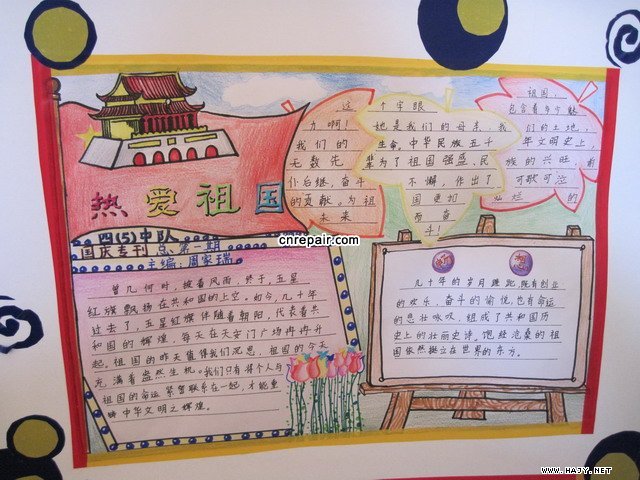 热爱祖国
四(5)中队
国庆专刊 总第一期
主编:周家瑞
祖国,
这个字眼 包含着多少魅
力啊!她是我们的母亲,我们的土地,
我们的生命,中华民族五千年文明史上,
无数先辈为了祖国强盛、民族的兴旺,前
仆后继,奋斗不懈,作出了可歌可泣
的贡献。为祖国更加灿烂的
未来而奋
斗!
曾几何时,披着风雨,终于,五星
红旗飘扬在共和国的上空。如今,几十年
过去了,五星红旗伴随着朝阳,代表着共
和国的辉煌,每天在天安门广场冉冉升
起。祖国的昨天值得我们沉思,祖国的今天
充满着盎然生机。我们只有将个人与
祖国的命运紧紧联系在一起,才能重
畴中华文明之辉煌。
几十年的岁月蹉跎,既有创业
的欢乐,奋斗的愉悦,也有命运
的悲壮咏叹,组成了共和国历
史上的壮丽史诗,饱经沧桑的祖
国依然挺立在世界的东方。
cnrepair.com
WWW.HAJY.NET